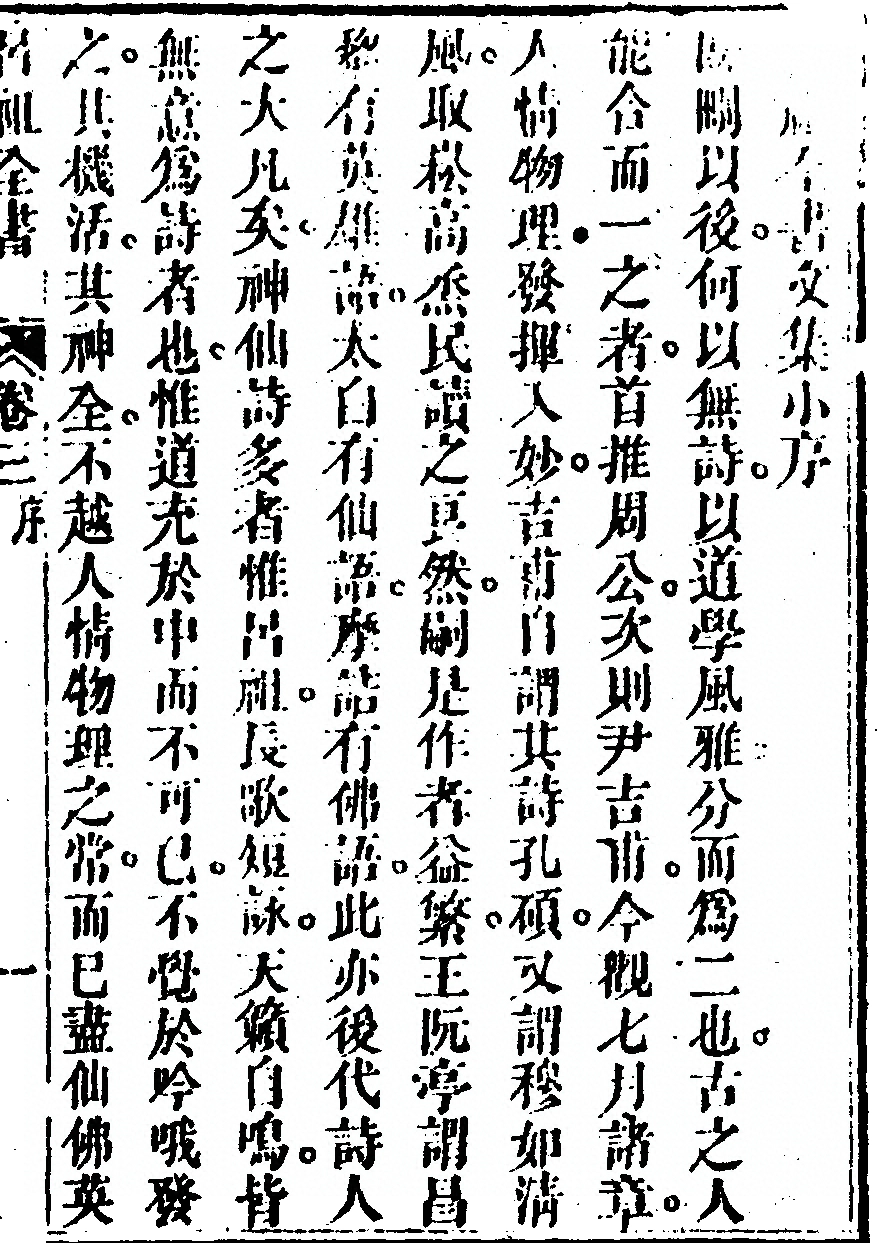 文集小序
刪以後何以無詩以道學風雅分而為二也古之人
能合而一之者首推周公次則尹吉甫今觀七月諸章
人情物理發揮入妙吉甫自謂其詩孔碩又謂穆如清
風取崧高烝民讀之良然嗣是作者益繁王阮亭謂昌
黎有英雄語太白有仙語摩詰有佛語此亦後代詩人
之大凡矣神仙詩多者惟呂祖長歌短詠天籟自鳴皆
無意為詩者也惟道充於中而不可已不覺於吟哦發
之其機活其神全不越人情物理之常而已盡仙佛英
呂祖全書 卷三 序 一